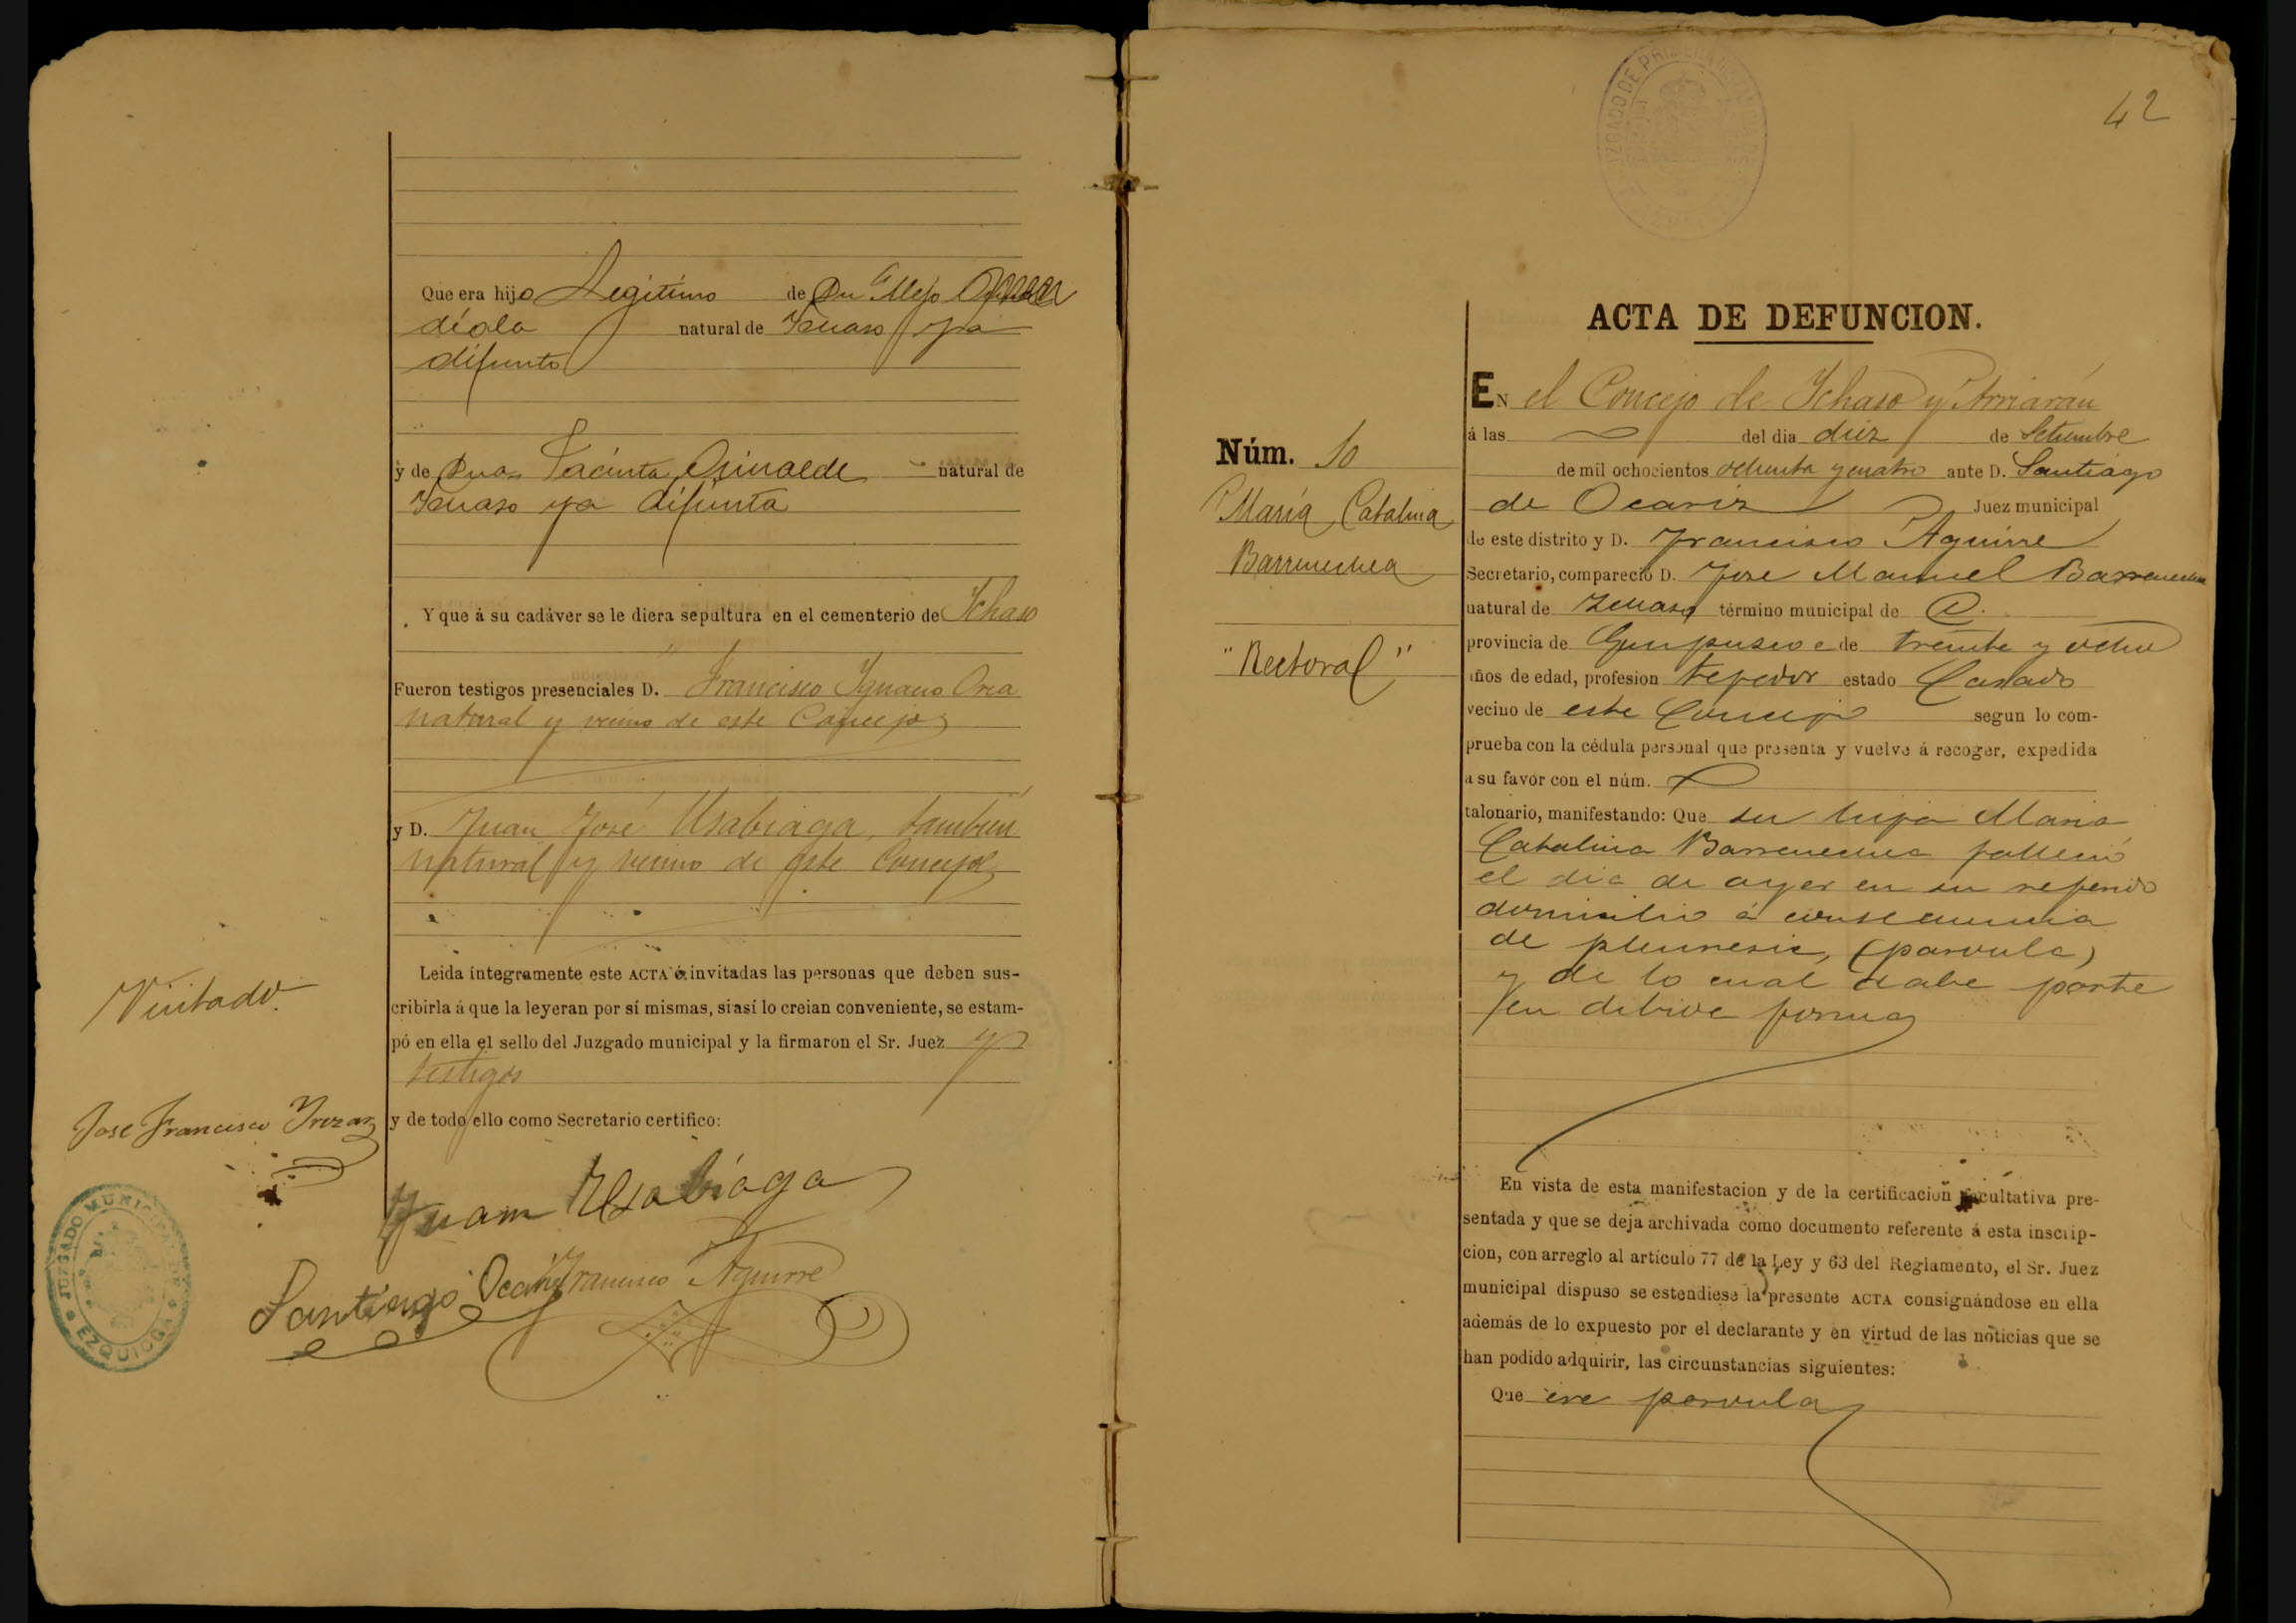 Que era hijo Legitimo de Dn Alejo
diola natural de Ichaso ya
difunto
y de Dna Jacinta Orinalde natural de
Ichaso ya difunta
Y que á su cadáver se le diera sepultura en el cementerio de Ichaso
Fueron testigos presenciales D. Francisco Ignacio Oria
natural y vecino de este Concejo
y D. Juan José Usabiaga, tambien
natural y vecino de este Concejo
Leida íntegramente este ACTA é invitadas las personas que deben sus-
cribirla á que la leyeran por sí mismas, si así lo creian conveniente, se estam-
pó en ella el sello del Juzgado municipal y la firmaron el Sr. Juez y
testigos
y de todo ello como Secretario certifico:
Visitado.
Jose Francisco Yrizar
Juan Usabiaga
Santiago Ocariz Francisco Aguirre
JUZGADO MUNICIPAL DE
EZQUIOGA
42
JUZGADO DE PRIMERA
ACTA DE DEFUNCION.
EN el Concejo de Ichaso y Arriarán
á las del dia diez de Setiembre
de mil ochocientos ochenta y cuatro ante D. Santiago
de Ocariz Juez municipal
de este distrito y D. Francisco Aguirre
Secretario, compareció D. Jose Manuel Barrenechea
natural de Ichaso término municipal de
provincia de Guipuzcoa de treinta y ocho
años de edad, profesion tejedor estado Casado
vecino de este Concejo segun lo com-
prueba con la cédula personal que presenta y vuelve á recoger, expedida
a su favor con el núm.
talonario, manifestando: Que su hija Maria
Catalina Barrenechea falleció
el dia de ayer en su referido
domicilio á consecuencia
de pleuresia, (parvula)
y de lo cual daba parte
en debida forma
En vista de esta manifestacion y de la certificacion facultativa pre-
sentada y que se deja archivada como documento referente á esta inscrip-
cion, con arreglo al artículo 77 de la Ley y 63 del Reglamento, el Sr. Juez
municipal dispuso se estendiese la presente ACTA consignándose en ella
además de lo expuesto por el declarante y en virtud de las noticias que se
han podido adquirir, las circunstancias siguientes:
Que era parvula
Núm. 10
María Catalina
Barrenechea
"Rectoral"